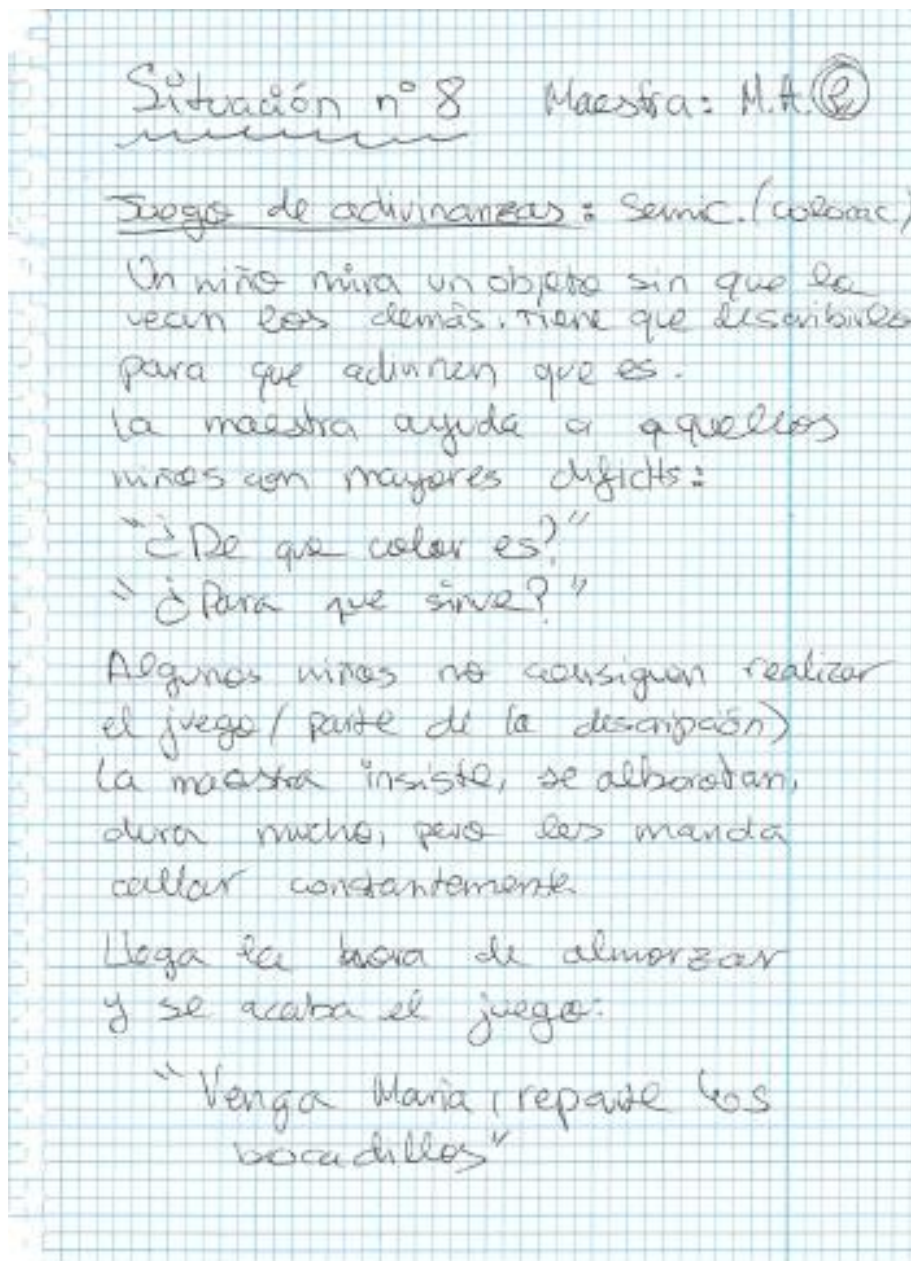 Situación nº 8 Maestra: M.A.
Juego de adivinanzas: Semic. (colorac)
Un niño mira un objeto sin que lo
vean los demás. Tiene que describirlo
para que adivinen que es.
La maestra ayuda a aquellos
niños con mayores dificits:
"¿De que color es?"
"¿Para que sirve?"
Algunos niños no consiguen realizar
el juego (parte de la descripción)
La maestra insiste, se alborotan,
dura mucho, pero les manda
callar constantemente.
Llega la hora de almorzar
y se acaba el juego:
"Venga Maria, reparte los
bocadillos"